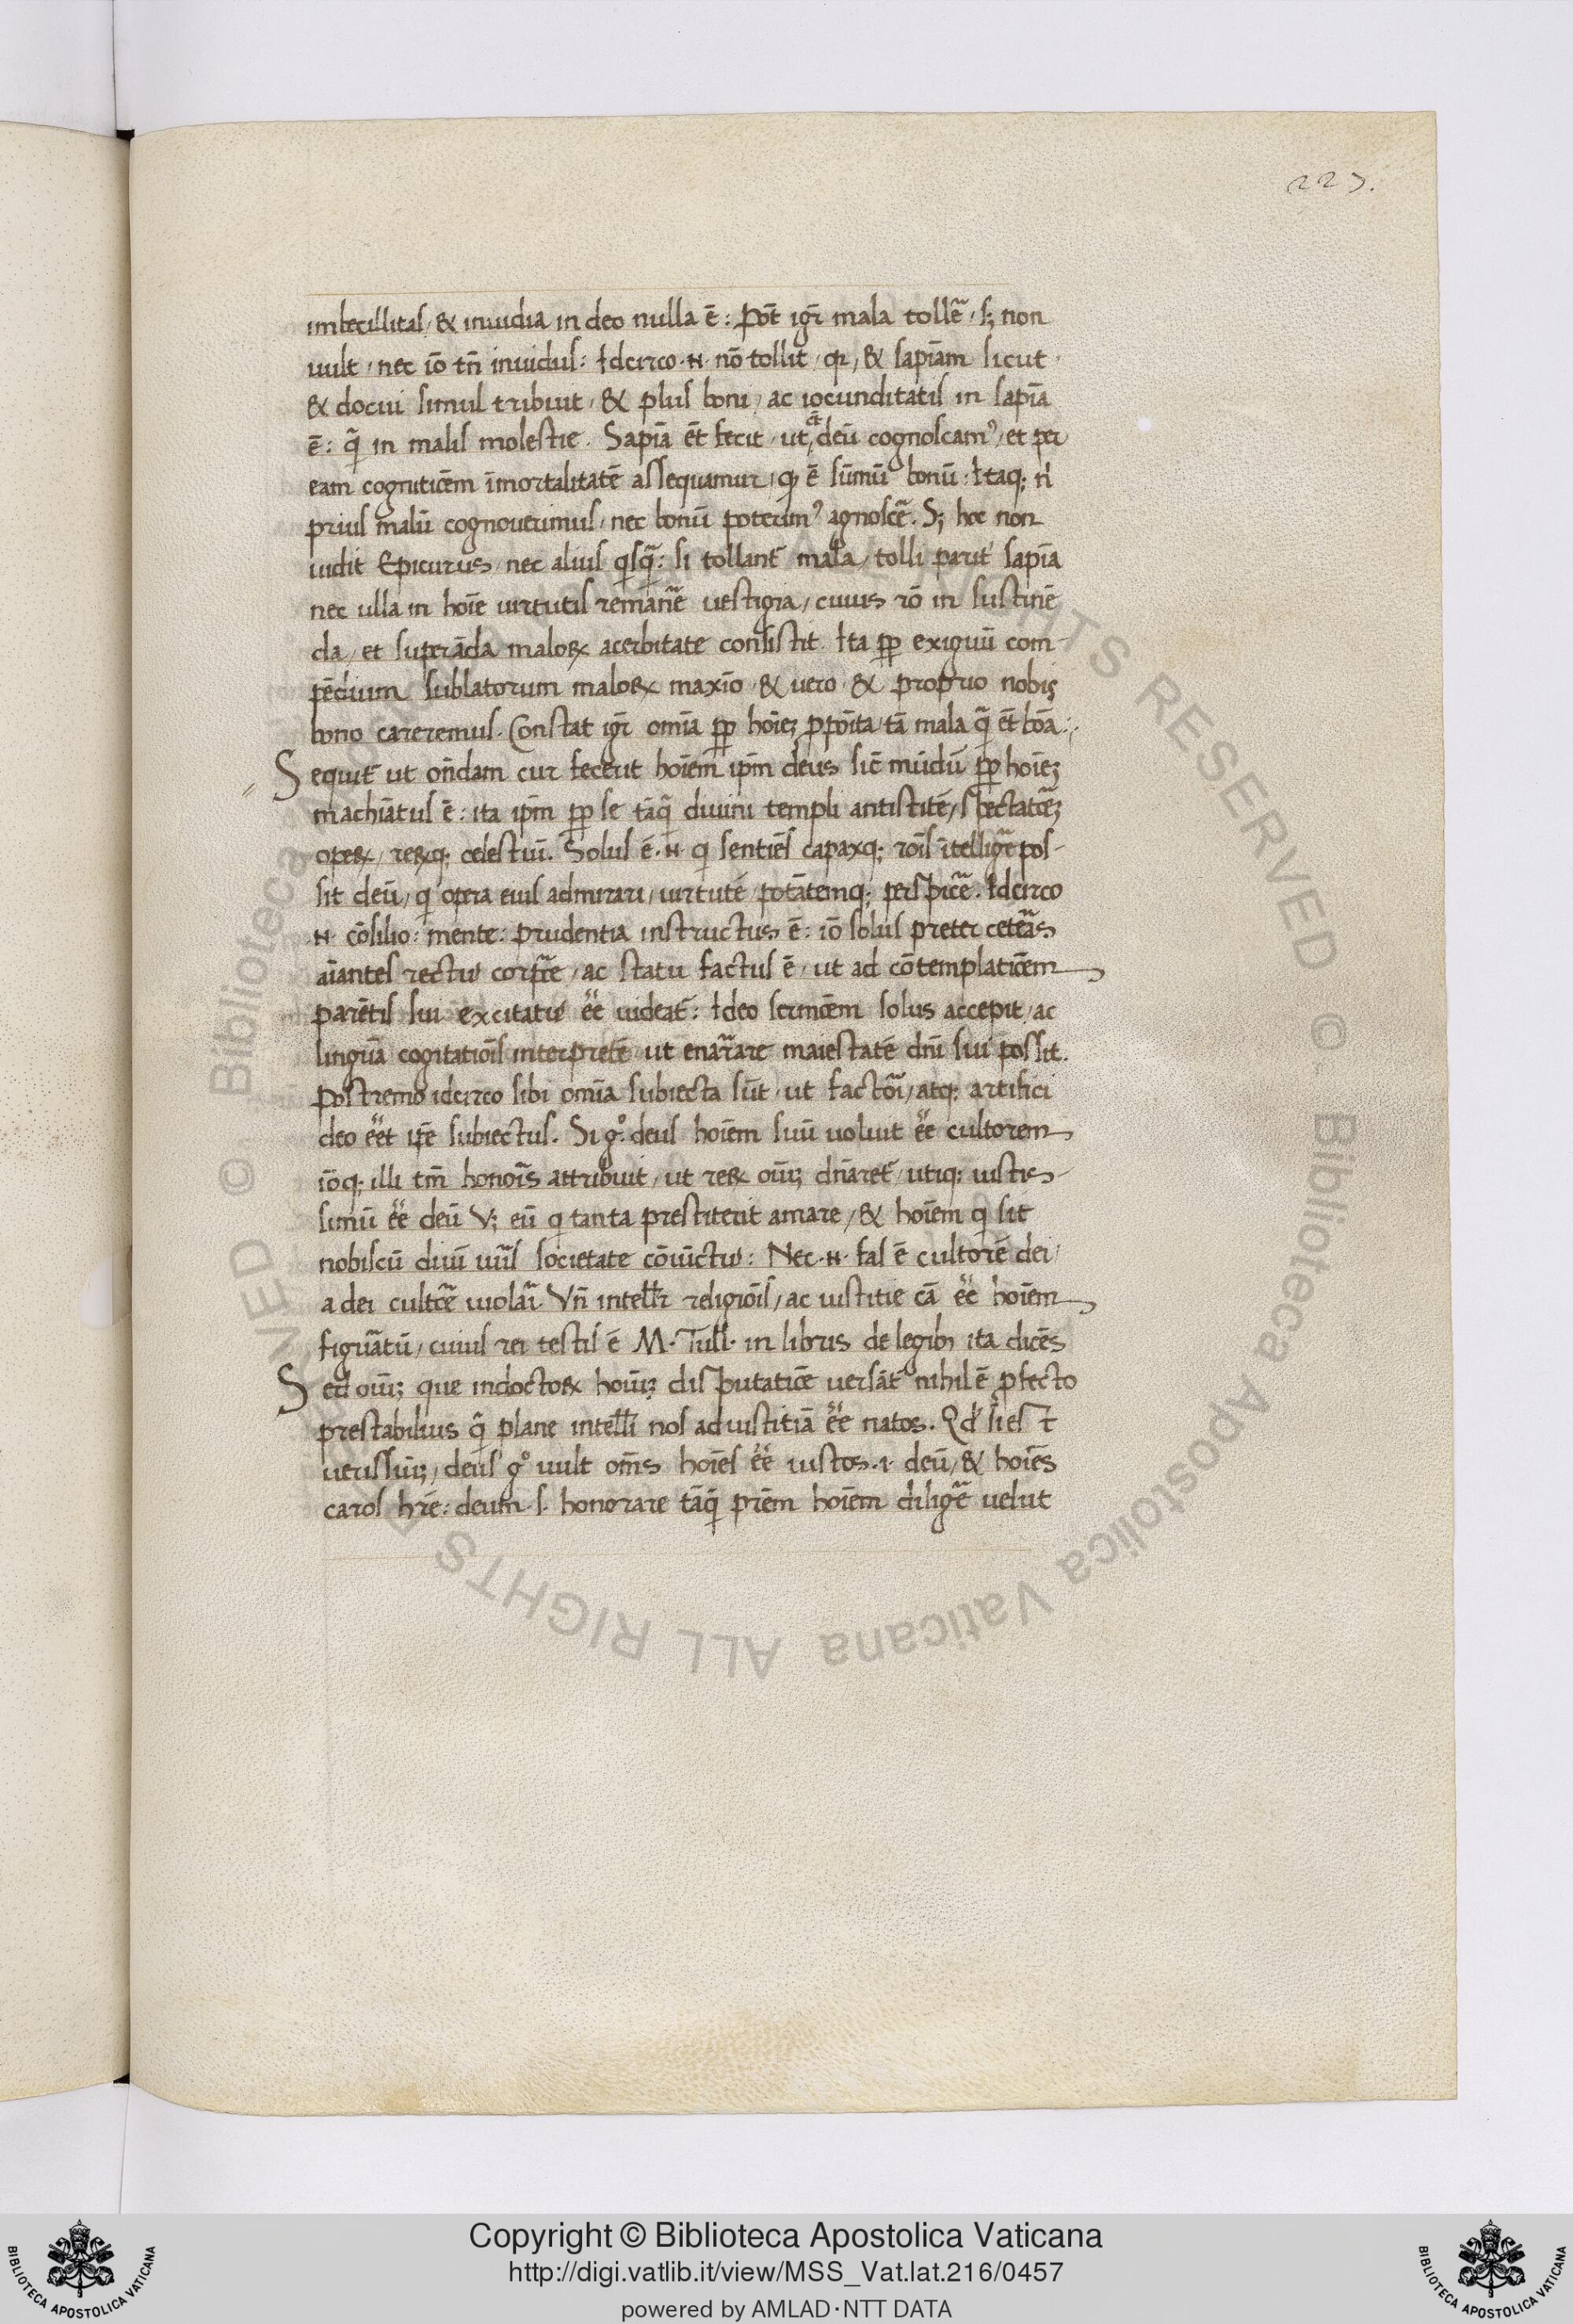 223.
imbecillitas / & inuidia in deo nulla ē : Pōt igr̄ mala tollē̄ · s; non
uult · nec iō tn̄ inuidus : Idcirco · n · nō tollit · qr / & sapiam̄ sicut ·
& docui simul tribuit · & plus boni / ac iocunditatis in sapīa
ē : q̄ in malis molestie . Sapīa ēt fecit · ut et deū cognoscam᾽ / et per
eam cognitiōem īmortalitatē assequamur / qđ ē sūmū bonū : Itaq; nⁱ
prius malū cognouerimus / nec bonū poterim᾽ agnosc̄e . S; hoc non
uidit Epicurus / nec alius qisq̄ : si tollant̄ mala / tolli parit̄ sapīa
nec ulla in hoīe uirtutis remanēe uestigia / cuius rō in sustinē
da / et superāda maloꝝ acerbitate consistit . Ita ꝓp exiguū com-
pēdium sublatorum maloꝝ maxīo · & uero · & proprio nobis
bono careremus . Constat igr̄ omīa ꝓp hoīez ꝓpoīta / tā mala q̄ ēt boā .
Sequit̄ ut on̄dam cur fecerit hoīem ipm̄ deus sic̄ mūdū ꝓp hoīez
machiātus ē : ita ipm̄ ꝓp se tāq̄ diuini templi antistitē / spectatoēz
opeꝝ / reꝝq; celestiū . Solus ē · n · qi sentiēs capaxq; roīs ītelligē̄ pos-
sit deū / qi opera eius admirari / uirtutē / potātemq; perspicē̄ . Idcirco
· n · cōsilio : mente : prudentia instructus ē : iō solus preter ceteās
aīantes recto corpē̄ / ac statu factus ē / ut ad cōtemplatiōem
parētis sui excitatus ēē uideat̄ : Ideo sermōem solus accepit / ac
linguā cogitatioīs interpretē ut enarare maiestatē dn̄i sui possit .
Postremo idcirco sibi omīa subiecta sūt · ut factoī / atq; artifici
deo ēēt ipē subiectus . Si gͦ deus hoīem suū uoluit ēē cultorem
iōq; illi tm̄ honoīs attribuit / ut reꝝ oīuz dn̄aret̄ / utiq; iustis-
simū ēē deū V; eū qi tanta prestiterit amare / & hoīem qi sit
nobiscū diuī iuīs societate cōiūctus : Nec · n · fas ē cultorē dei /
a dei cultoē uiolaī . Vn̄ intell̄r religioīs / ac iustitie cā ēē hoīem
figuātū / cuius rei testis ē M · Tull̄ · in libris de legibꝫ ita dicēs
Sed oīuz que indoctoꝝ hoīuz disputatiōe uersāt̄ nihil ē ꝓfecto
prestabilius q̄ plane intell̄i nos ad iustitiā ēē natos . Qđ si est
uerissīuz / deus gͦ uult oms̄ hoīes ēē iustos · i · deū / & hoīes
caros hrē : deum · s · honorare tāq̄ prēm hoīem diligē̄ uelut
Copyright © Biblioteca Apostolica Vaticana
http://digi.vatlib.it/view/MSS_Vat.lat.216/0457
powered by AMLAD·NTT DATA